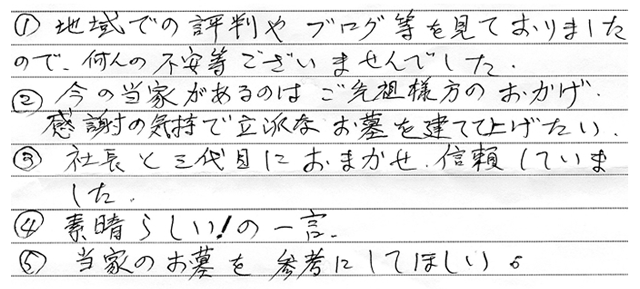 ① 地域での評判や ブログ等を見ておりました
ので、何んの不安等ございませんでした.
② 今の当家があるのは ご先祖様方の おかげ.
感謝の気持で立派な お墓を建てて上げたい.
③ 社長と三代目に おまかせ. 信頼していま
した.
④ 素晴らしい!の一言.
⑤ 当家のお墓を 参考にしてほしい。